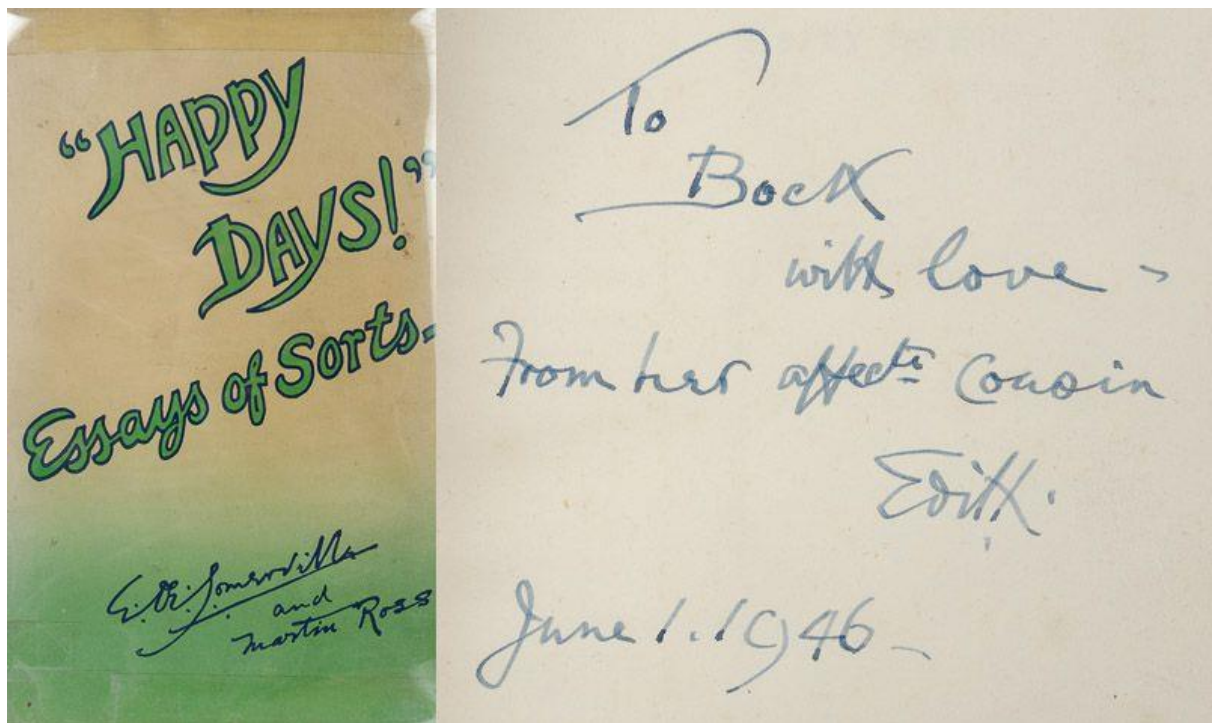 “HAPPY
DAYS!”
Essays of Sorts.
E. Œ. Somerville
and
Martin Ross
To
Bock
with love -
From her affecte Cousin
Edith.
June 1. 1946 -